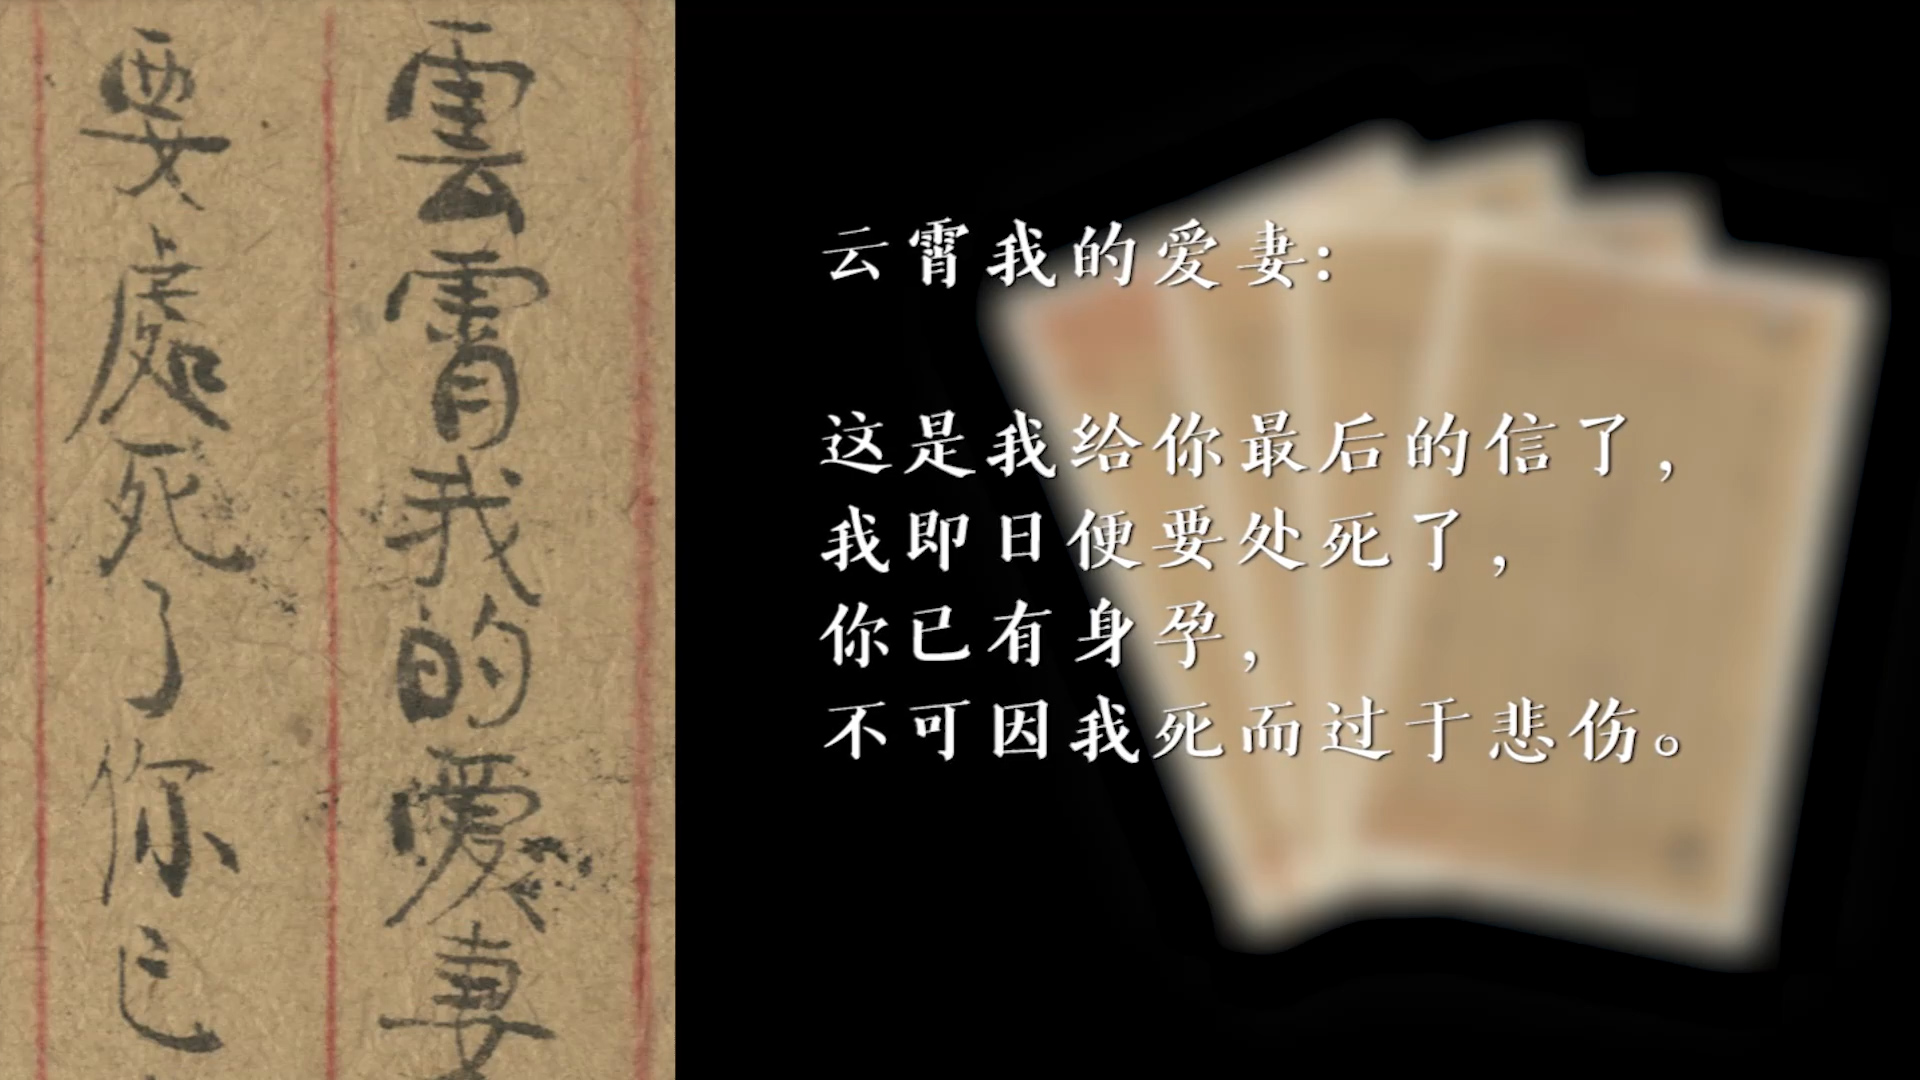 雲霄我的愛妻
要處死了你已
云霄我的爱妻：
这是我给你最后的信了，
我即日便要处死了，
你已有身孕，
不可因我死而过于悲伤。